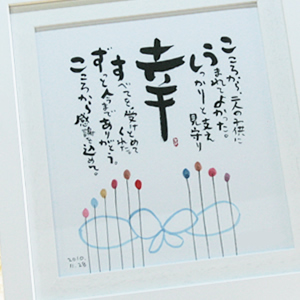 こころから、二人の子供に
うまれてよかった。
しっかりと支え見守り
幸
すべてを、受けとめて
くれた。
ずっと今まで
ありがとう。
こころから感謝を込めて。
2010
11.28